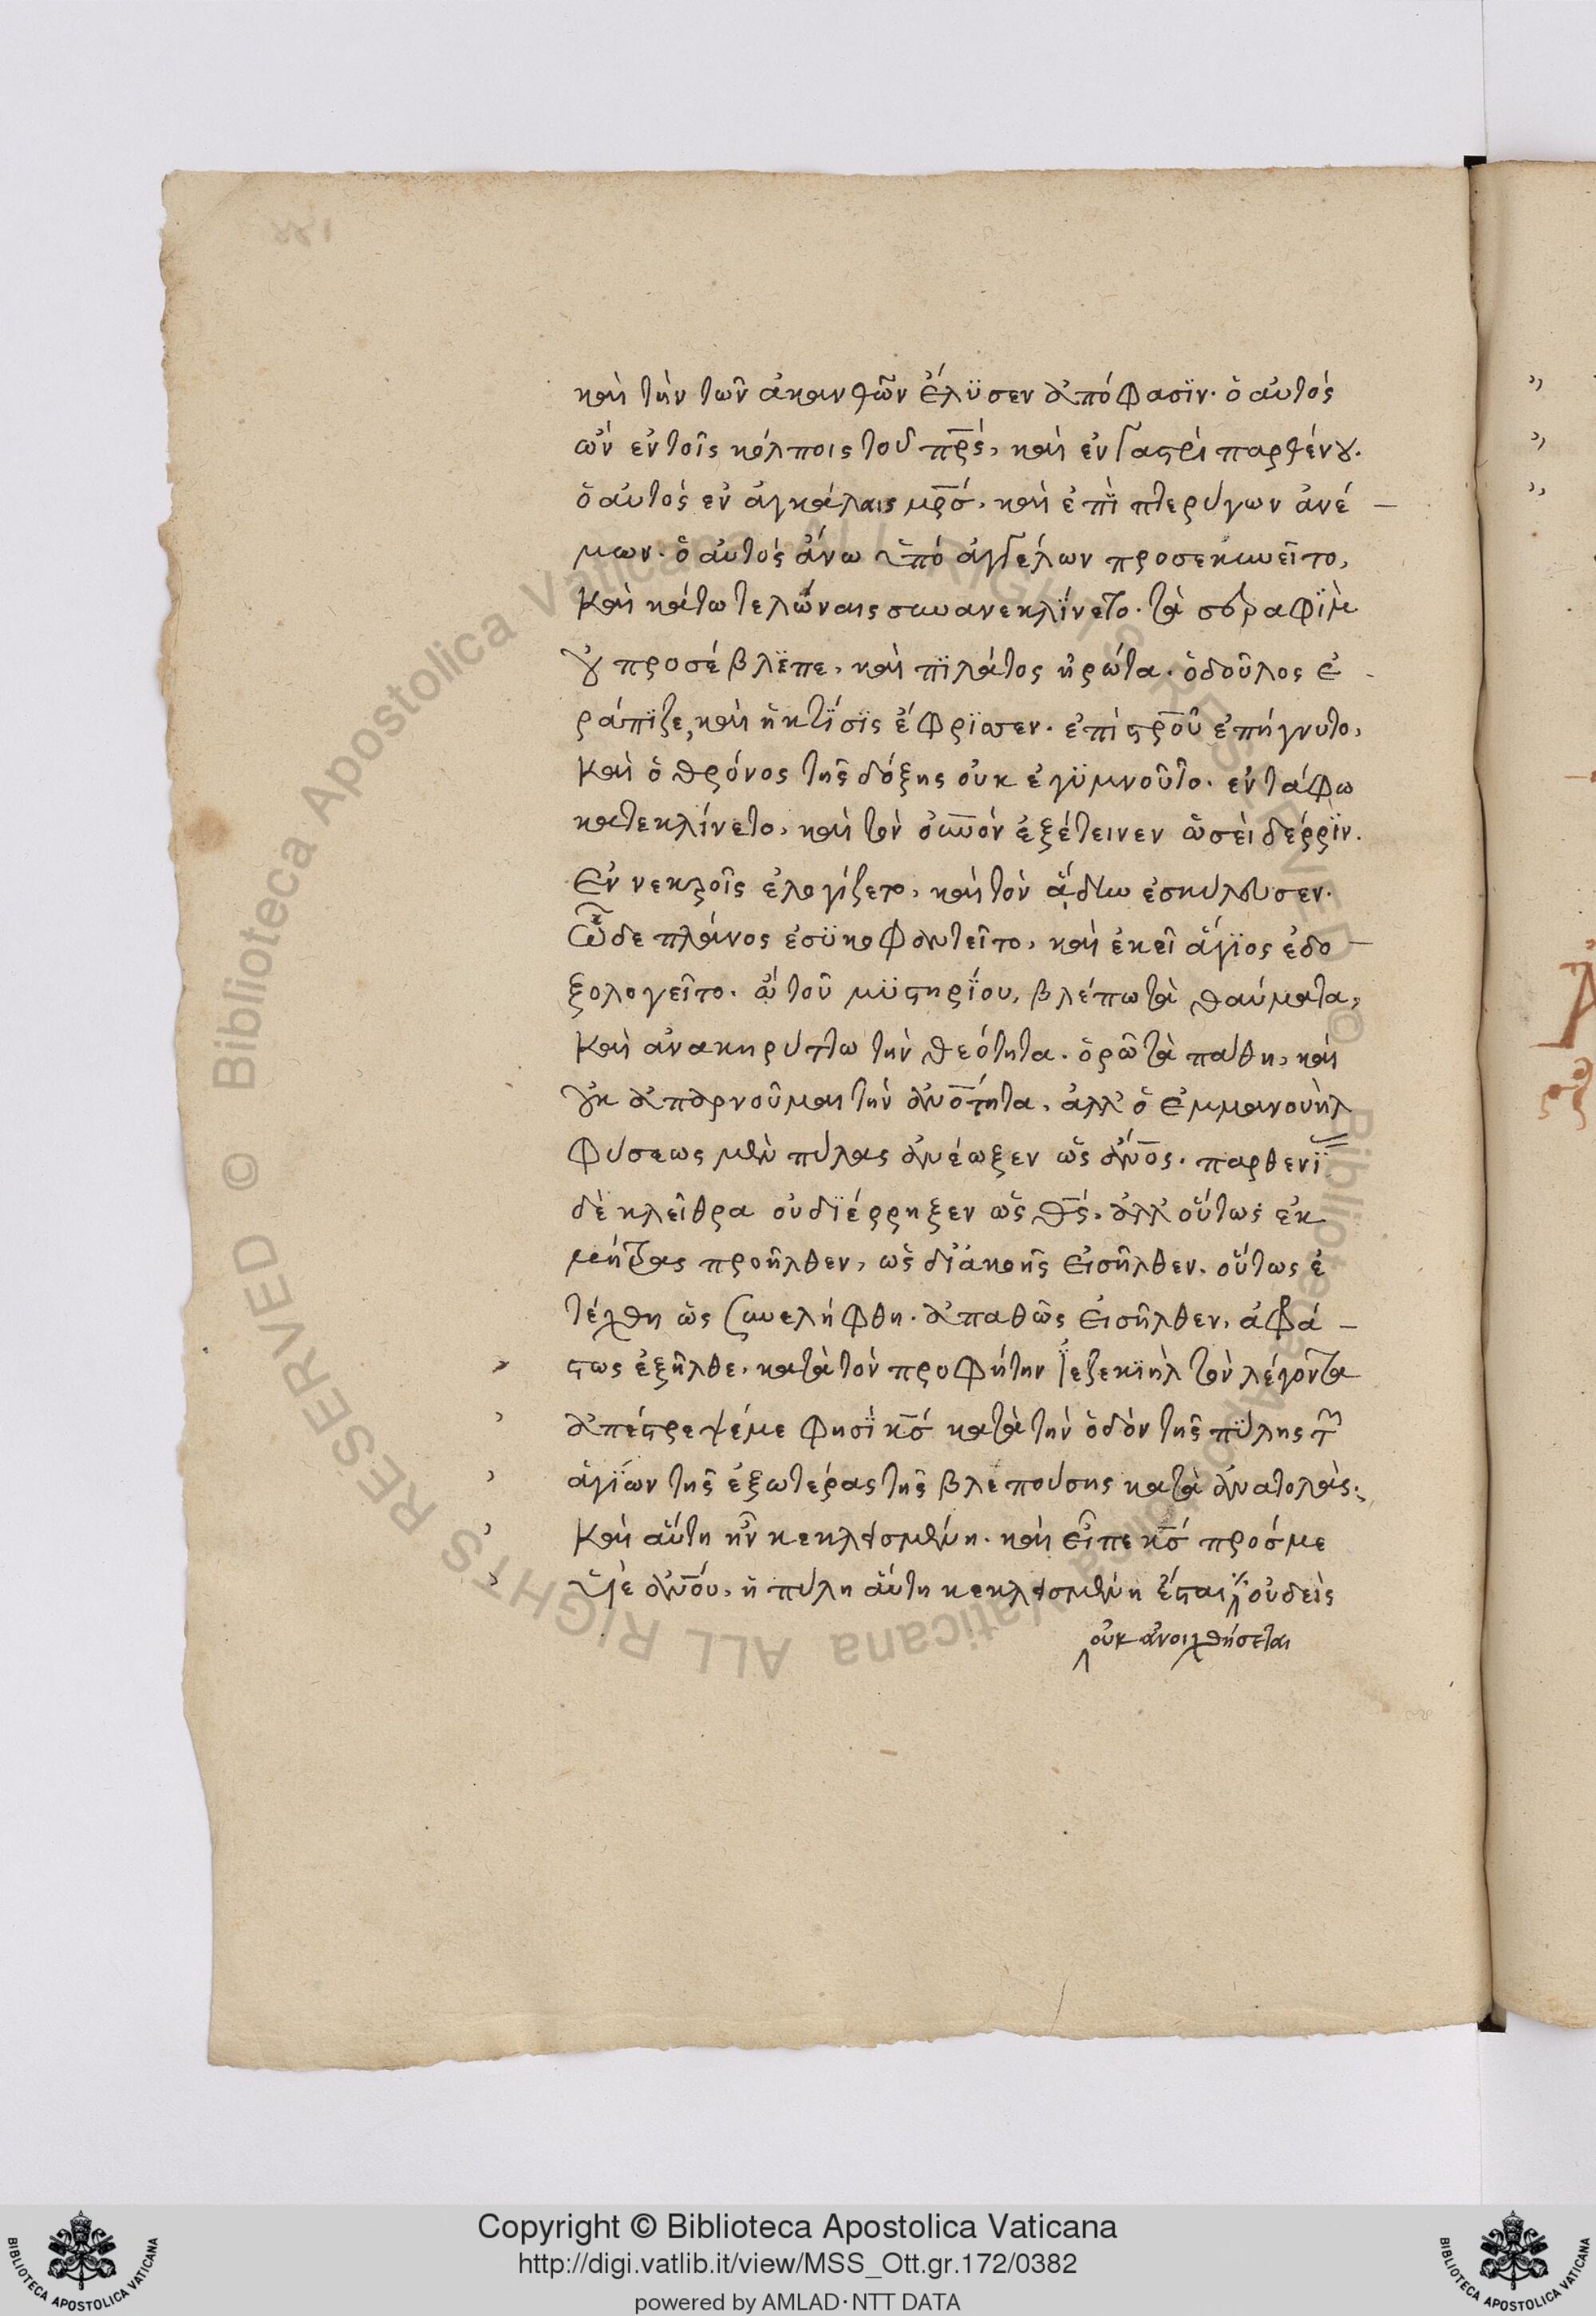 καὶ τὴν τῶν ἀκανθῶν ἔλϋσεν ἀπόφασϊν· ὁ αὐτὸς
ὢν ἐν τοῖς κόλποις τοῦ πρς, καὶ ἐν γαστρὶ παρθένου.
ὁ αὐτὸς ἐν ἀγκάλαις μρσ, καὶ ἐπὶ πτερύγων ἀνέ –
μων· ὁ αὐτὸς ἄνω ὑπὸ ἀγγέλων προσεκυνεῖτο,
Καὶ κάτω τελώναις συνανεκλίνετο· τὰ σεραφὶμ
οὐ προσέβλεπε, καὶ πϊλάτος ἠρώτα· ὁ δοῦλος ἐ
ράπϊζε, καὶ ἡ κτίσϊς ἔφρϊσσεν· ἐπὶ στροῦ ἐπήγνυτο,
Καὶ ὁ θρόνος τῆς δόξης οὐκ ἐγϋμνοῦτο· ἐν τάφω
κατεκλίνετο, καὶ τὸν οὐνὸν ἐξέτεινεν ὡσεὶ δέρρϊν.
Ἐν νεκροῖς ἐλογίζετο, καὶ τὸν ἅδην ἐσκύλευσεν.
Ὧδε πλάνος ἐσϋκοφαντεῖτο, καὶ ἐκεῖ ἅγϊος ἐδο –
ξολογεῖτο. ὢ τοῦ μϋστηρΐου, βλέπω τὰ θαύματα,
Καὶ ἀνακηρύττω τὴν θεότητα. ὁρῶ τὰ πάθη, καὶ
οὐκ ἀπαρνοῦμαι τὴν ἀνοτητα. ἀλλ' ὁ ἐμμανουὴλ
Φύσεως μὲν πύλας ἀνέωξεν ὡς ἄνος. παρθενΐ
δὲ κλεῖθρα οὐ δϊέρρηξεν ὡς θς. ἀλλ' οὕτως ἐκ
μήτρας προῆλθεν, ὡς δι' ἀκοῆς εἰσῆλθεν. οὕτως ἐ
τέχθη ὡς συνελήφθη. ἀπαθῶς εἰσῆλθεν, ἀφρά –
στως ἐξῆλθε. κατὰ τὸν προφήτην Ἰεζεκϊὴλ τὸν λέγοντα
ἀπέστρεψέ με φησὶ κσ κατὰ τὴν ὁδὸν τῆς πϋλης τῶν
ἁγϊων τῆς ἐξωτέρας τῆς βλεπούσης κατὰ ἀνατολάς.
Καὶ αὕτη ἦν κεκλεισμένη. καὶ εἶπε κσ πρός με
υἱὲ ἀνου, ἡ πύλη αὕτη κεκλεισμένη ἔσται οὐδεὶς
οὐκ ἀνοιχθήσεται
Copyright © Biblioteca Apostolica Vaticana
http://digi.vatlib.it/view/MSS_Ott.gr.172/0382
powered by AMLAD·NTT DATA
BIBLIOTECA APOSTOLICA VATICANA
BIBLIOTECA APOSTOLICA VATICANA
Biblioteca Apostolica Vaticana ALL RIGHTS RESERVED ©
Biblioteca Apostolica Vaticana ALL RIGHTS RESERVED ©